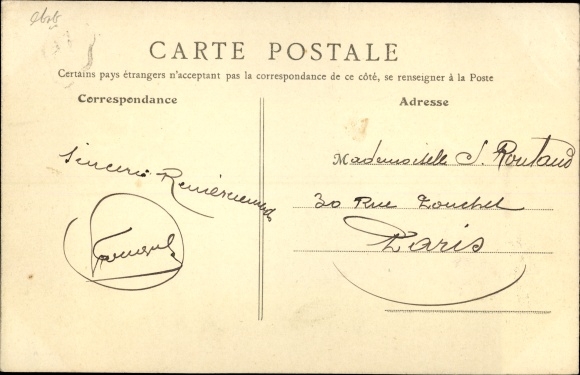 CARTE POSTALE
Certains pays étrangers n'acceptant pas la correspondance de ce côté, se renseigner à la Poste
Correspondance
Adresse
Sincère Remerciements
Mademoiselle S. Routaud
30 Rue Pouchet
Paris